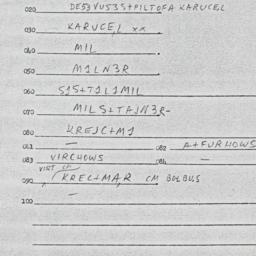 020 DE53VUS3S+PILTOFA KARUCEL
030 KARUCEL xx
040 MIL
050 M1LN3R
060 S1S+T1L1MIL
070 MILS+TAJN3R-
080 KREJC+M1
081 — 082 A+FURHOWS
083 VIRCHOWS 084 —
090 KREC+MAR CM BOLBUS
100 —